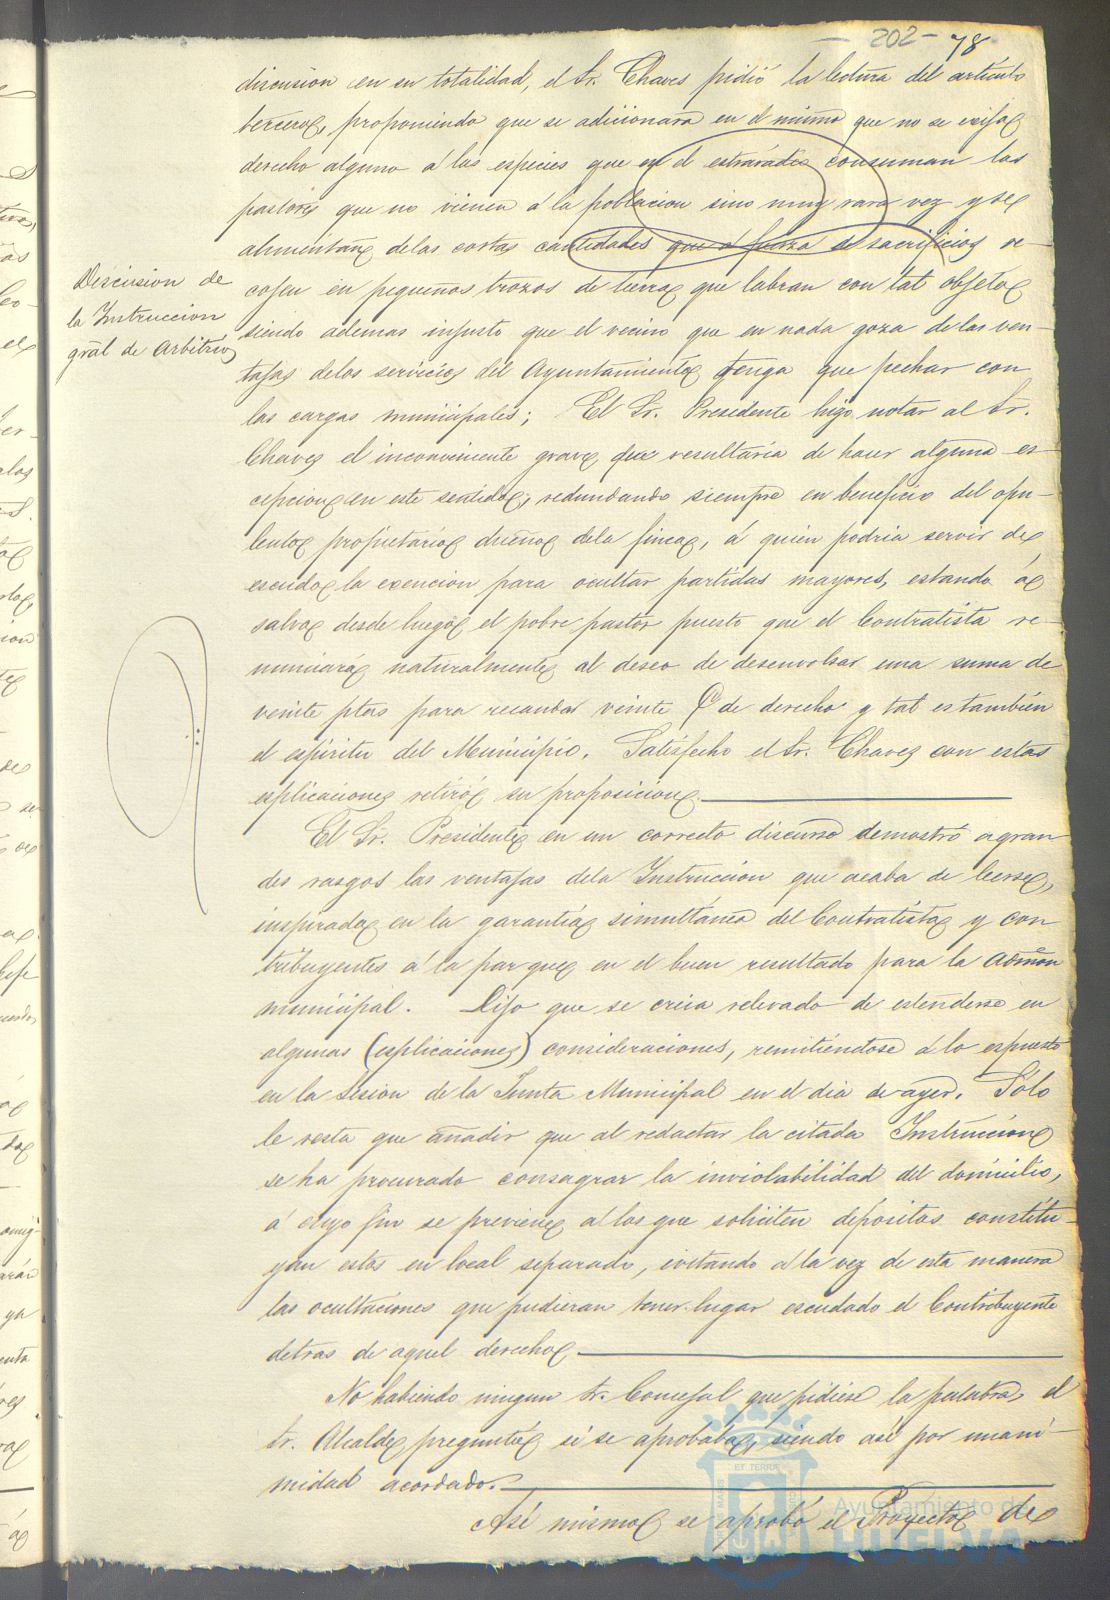 - 202 - 78
discusion en su totalidad, el Sr. Chaves pidió la lectura del artículo
tercero, proponiendo que se adicionara en el mismo que no se exija
derecho alguno á las especies que en el estraradio consuman los
pastores que no vienen á la poblacion sino muy rara vez y se
alimentan de las cortas cantidades que á fuerza de sacrificios re-
cojen en pequeños trozos de tierra que labran con tal objeto
siendo ademas injusto que el vecino que en nada goza de las ven-
tajas de los servicios del Ayuntamiento tenga que pechar con
las cargas municipales; El Sr. Presidente hizo notar al Sr.
Chaves el inconveniente grave que resultaria de hacer alguna es-
cepcion en este sentido, redundando siempre en beneficio del opu-
lento propietario dueño de la finca, á quien podria servir de
escudo la exencion para ocultar partidas mayores, estando á
salvo desde luego el pobre pastor puesto que el Contratista re-
nunciará naturalmente al deseo de desenvolsar una suma de
veinte ptas para recaudar veinte de derecho y tal es tambien
el espiritu del Municipio. Satisfecho el Sr. Chaves con estas
esplicaciones retiró su proposicion.
Discusion de
la Instruccion
gral de Arbitrios
El Sr. Presidente en un correcto discurso demostró a gran-
des rasgos las ventajas de la Instruccion que acaba de leerse,
inspirada en la garantía simultánea del Contratista y con
tribuyentes á la par que en el buen resultado para la Admon
municipal. Dijo que se creia relevado de estenderse en
algunas (esplicaciones) consideraciones, remitiéndose á lo espuesto
en la Sesion de la Junta Municipal en el dia de ayer. Sólo
le resta que añadir que al redactar la citada Instruccion
se ha procurado consagrar la inviolabilidad del domicilio,
á cuyo fin se previene á los que soliciten depósitos constitu-
yan estos en local separado, evitando á la vez de esta manera
las ocultaciones que pudieran tener lugar escudado el Contribuyente
detras de aquel derecho.
No habiendo ningun Sr. Concejal que pidiese la palabra, el
Sr. Alcalde preguntó si se aprobaba, siendo así por unani-
midad acordado.
Así mismo se aprobó el Proyecto de
Ayuntamiento de
HUELVA